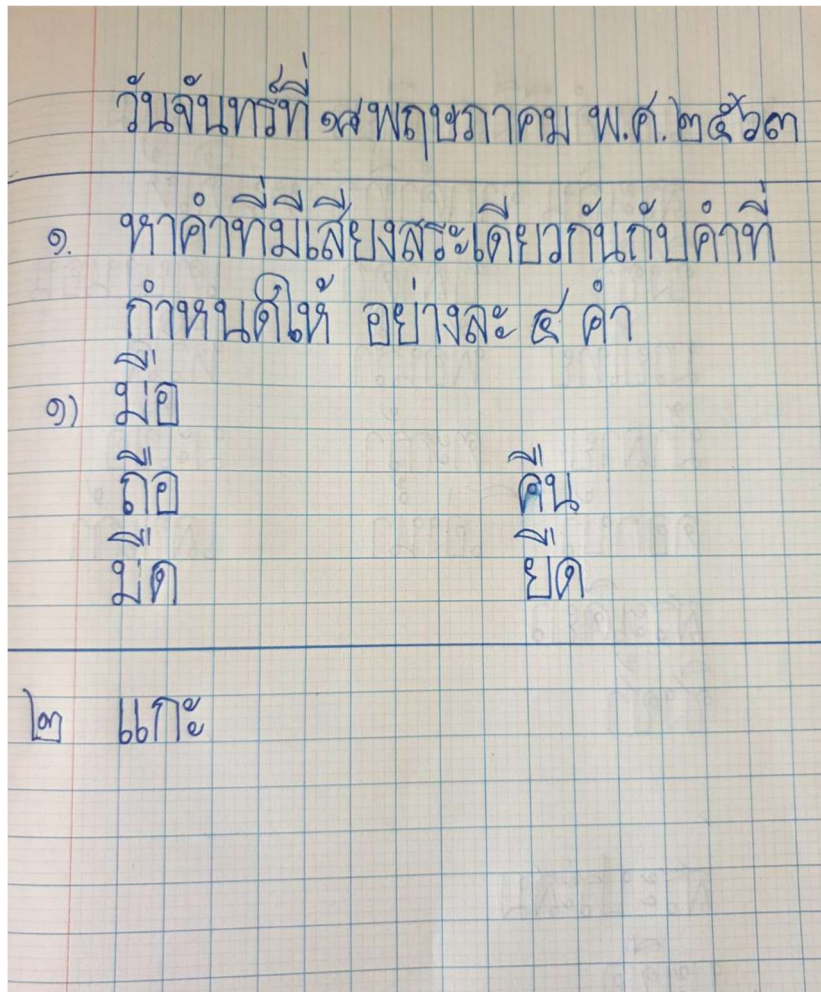 วันจันทร์ที่ ๑๘ พฤษภาคม พ.ศ. ๒๕๖๓
๑. หาคำที่มีเสียงสระเดียวกันกับคำที่
กำหนดให้ อย่างละ ๕ คำ
๑) มือ
ถือ คืน
มืด ยืด
๒ แกะ